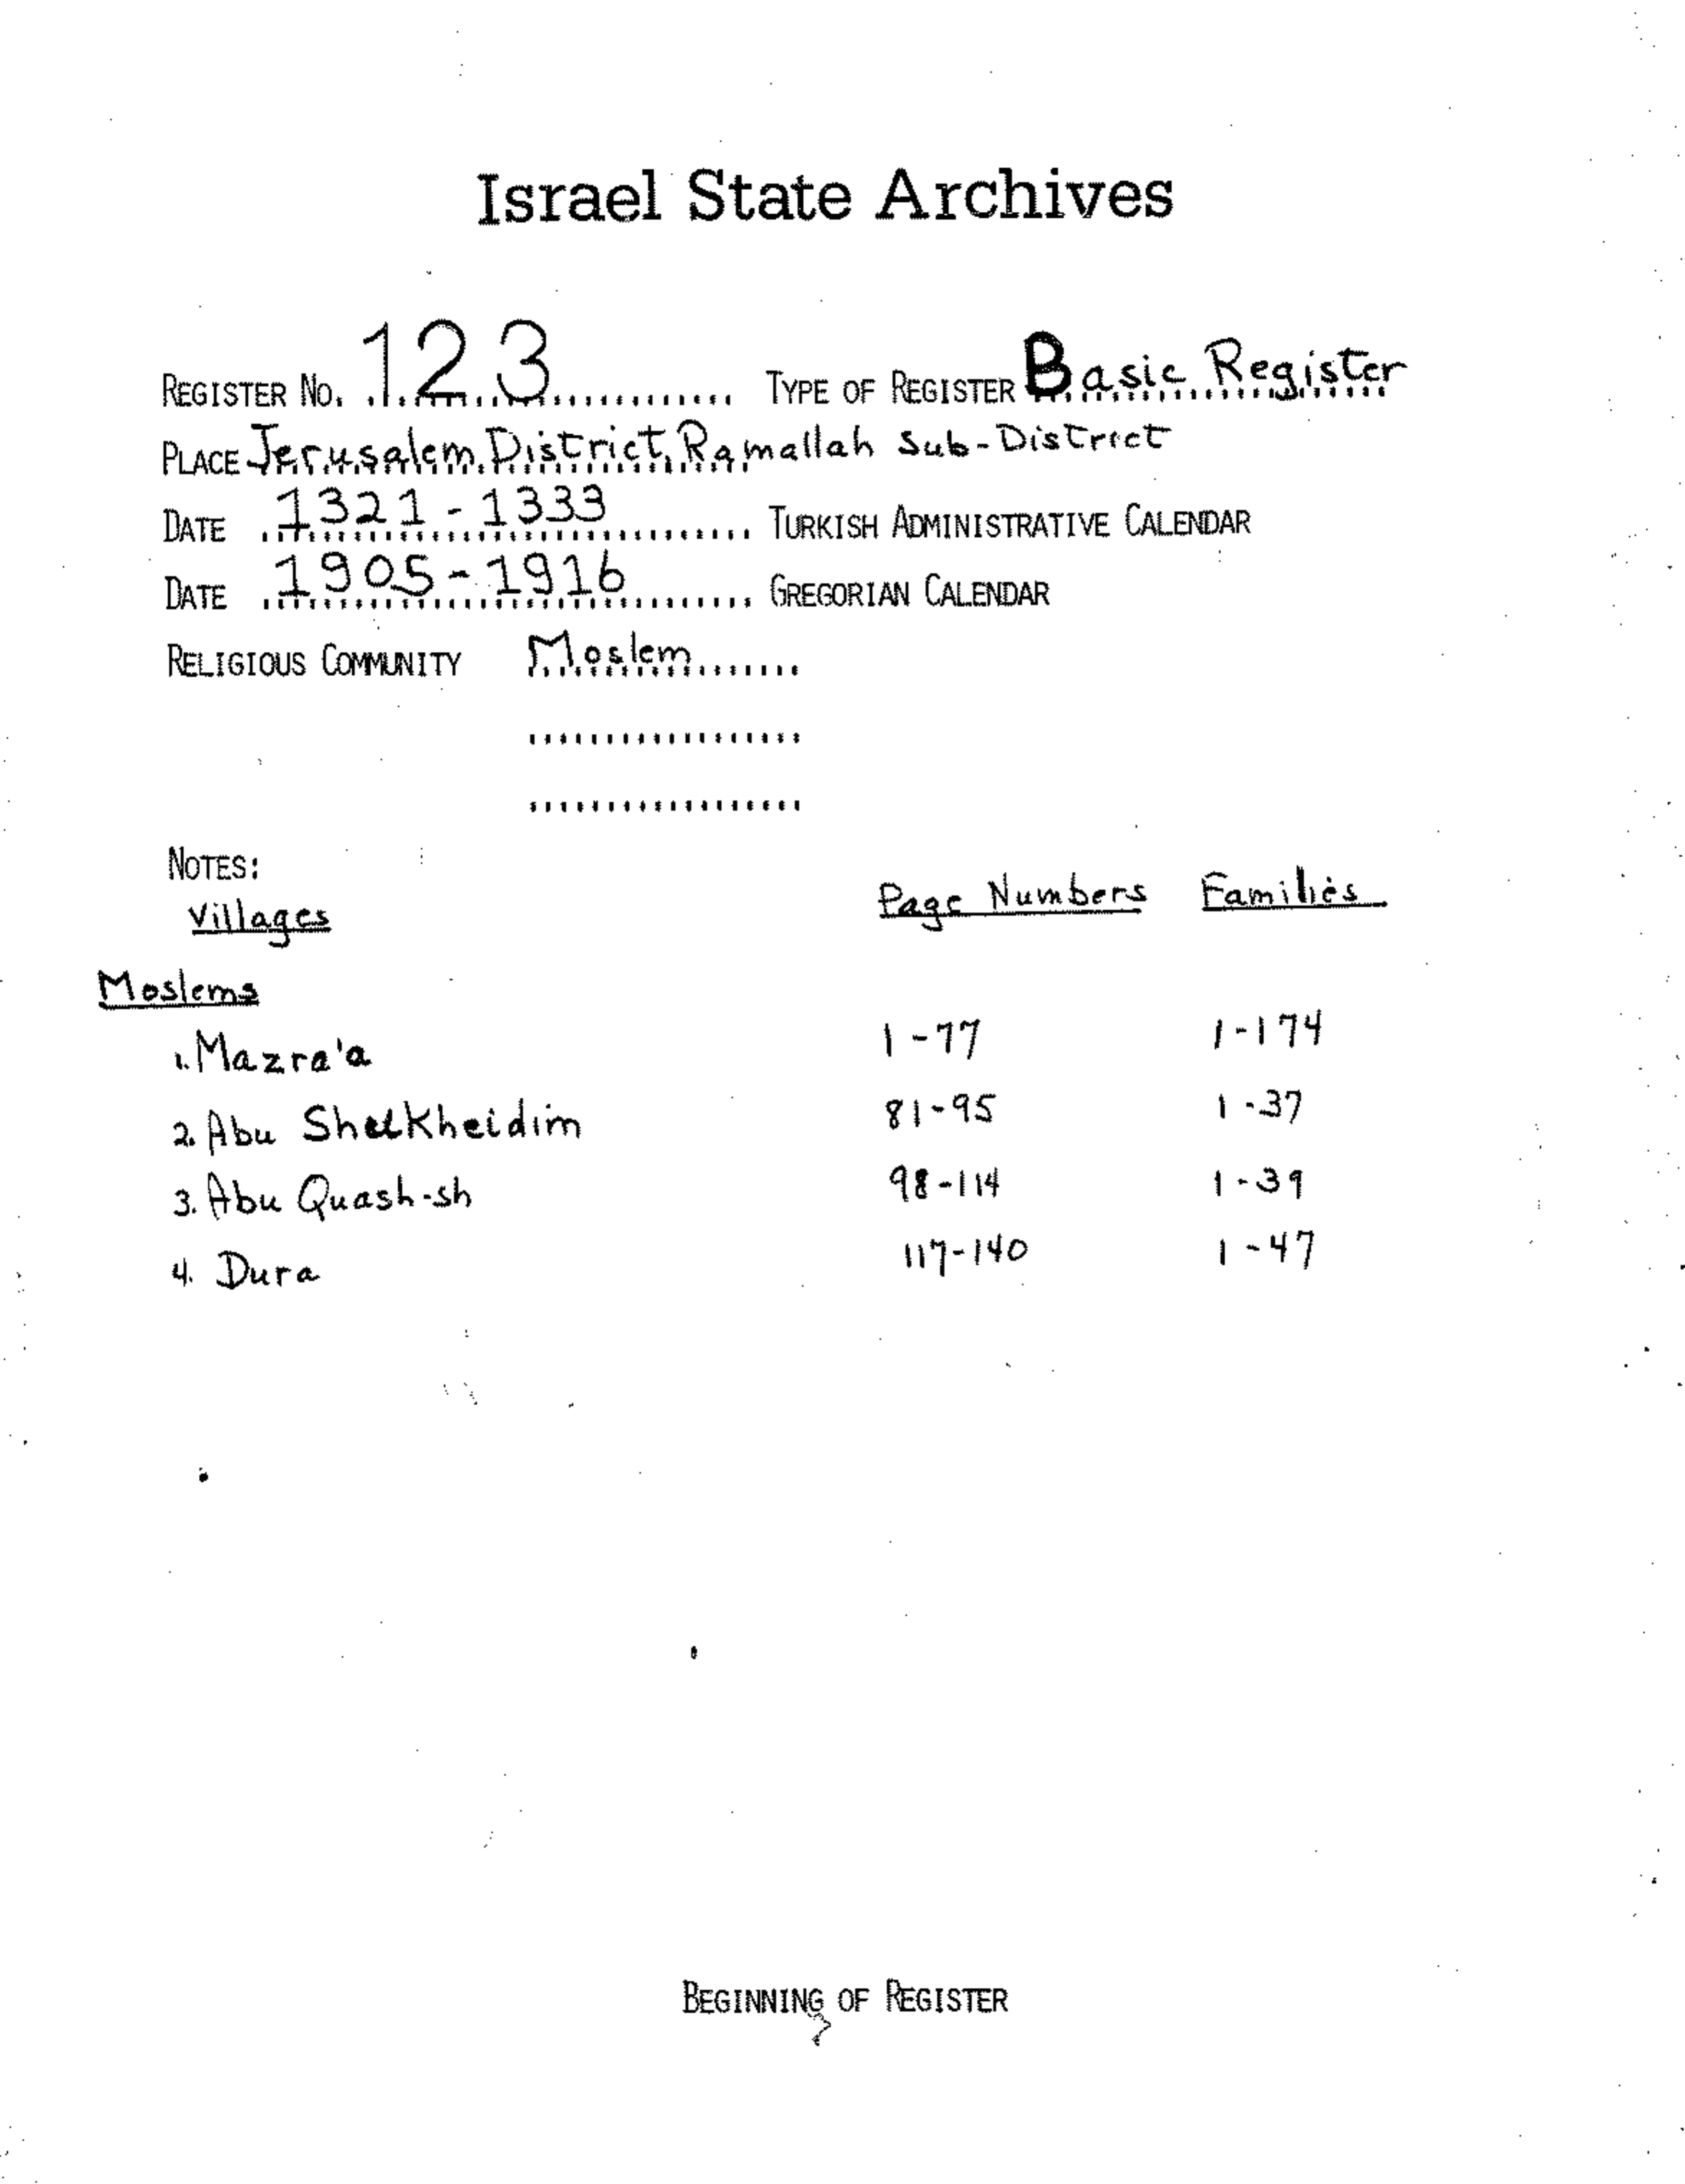 Israel State Archives
REGISTER NO. 123 TYPE OF REGISTER Basic Register
PLACE Jerusalem District, Ramallah Sub-District
DATE 1321-1333 TURKISH ADMINISTRATIVE CALENDAR
DATE 1905-1916 GREGORIAN CALENDAR
RELIGIOUS COMMUNITY Moslem
NOTES:
Villages Page Numbers Families
Moslems
1. Mazra'a 1-77 1-174
2. Abu 81-95 1-37
3. Abu Quash-sh 98-114 1-39
4. Dura 117-140 1-47
BEGINNING OF REGISTER